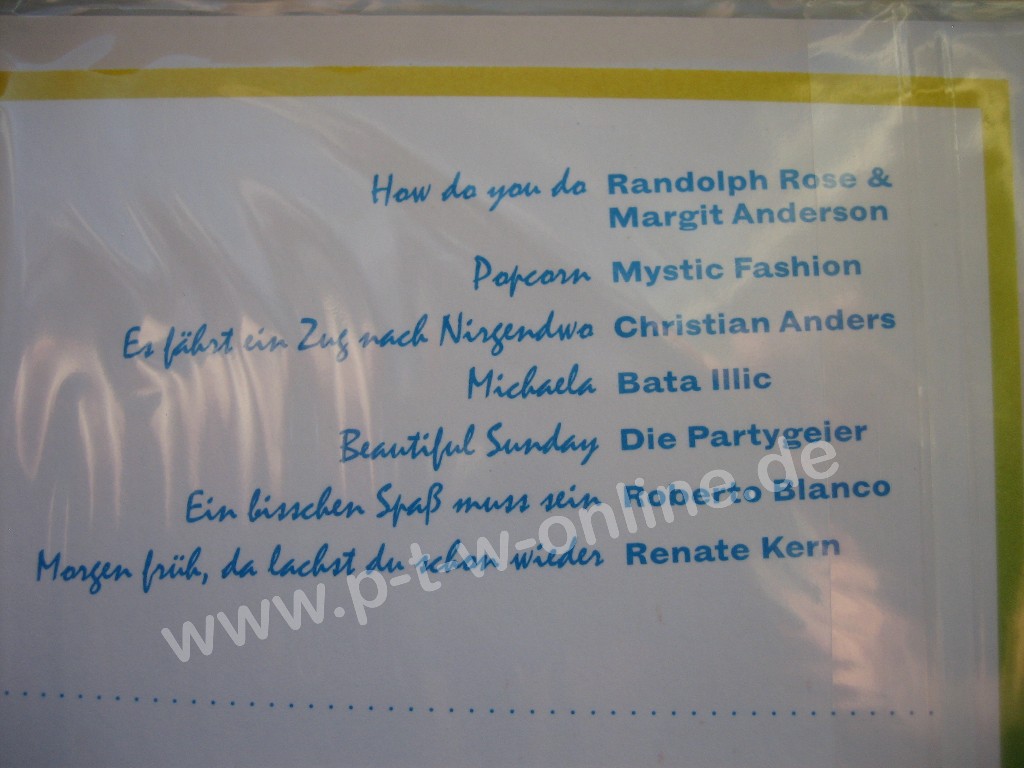 How do you do Randolph Rose &
Margit Anderson
Popcorn Mystic Fashion
Es fährt ein Zug nach Nirgendwo Christian Anders
Michaela Bata Illic
Beautiful Sunday Die Partygeier
Ein bisschen Spaß muss sein Roberto Blanco
Morgen früh, da lachst du schon wieder Renate Kern
www.p-t-w-online.de